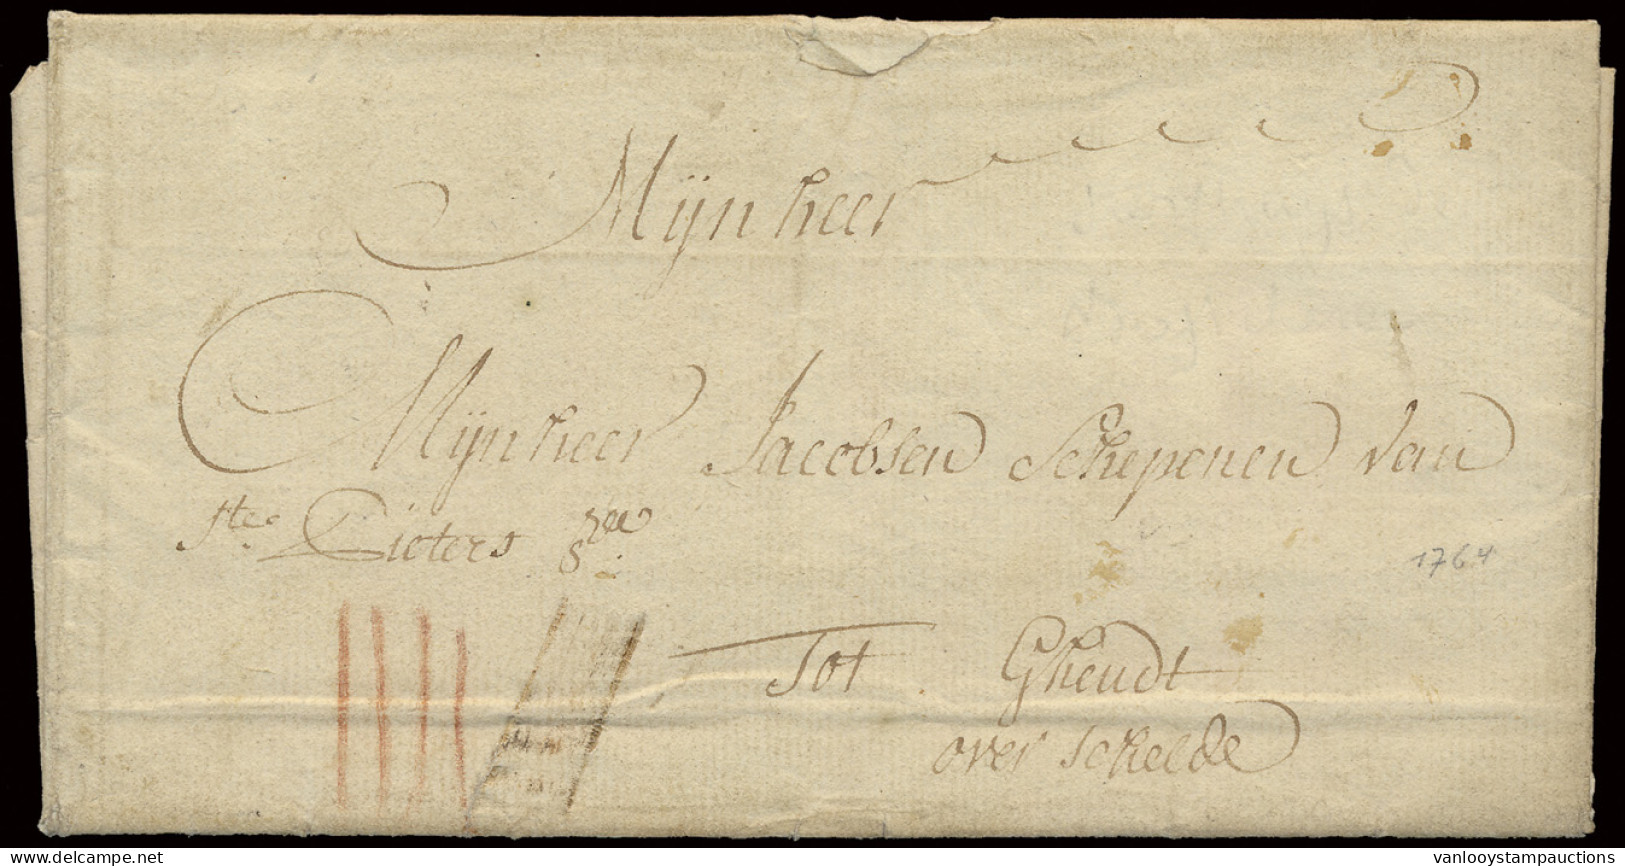 Mijnheer
Mijnheer Jacobsen Schepenen van
Ste. Pieters
1764
Tot Ghendt
over schelde
vanlooystampauctions